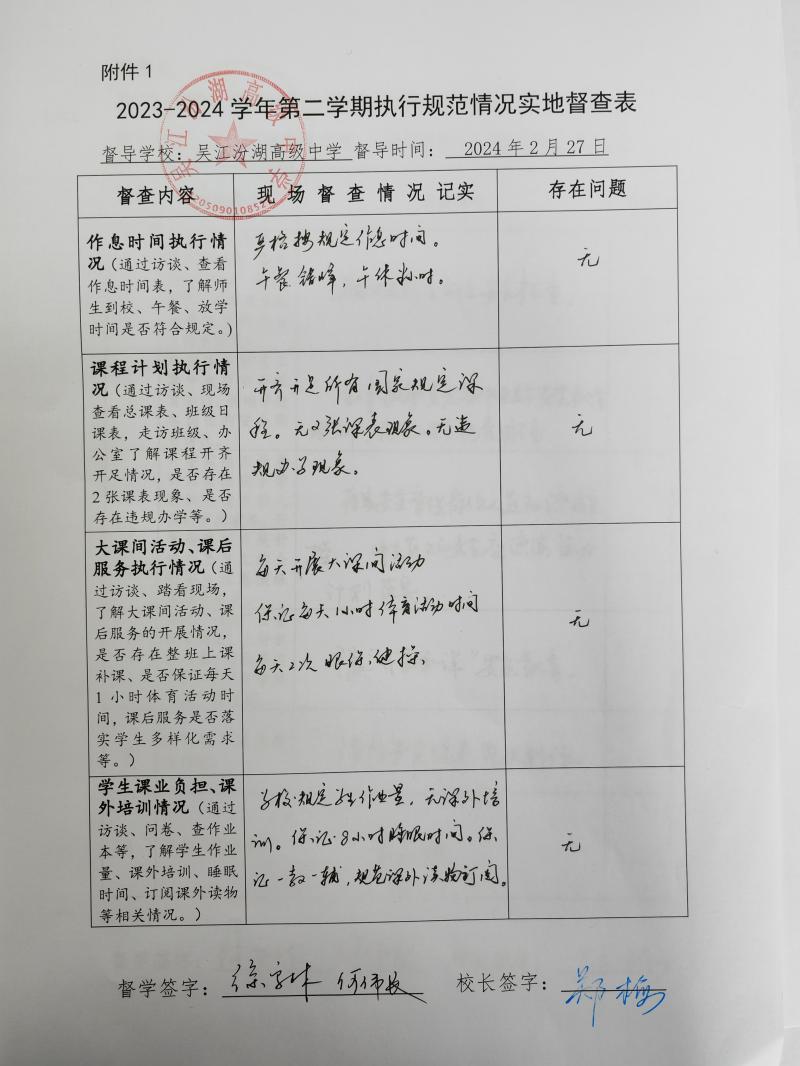 附件 1
2023-2024 学年第二学期执行规范情况实地督查表
督导学校：吴江汾湖高级中学 督导时间： 2024 年 2 月 27 日
督查内容 现 场 督 查 情 况 记实 存在问题
作息时间执行情
况（通过访谈、查看
作息时间表，了解师
生到校、午餐、放学
时间是否符合规定。）
严格按规定作息时间。
午餐错峰，午休
无
课程计划执行情
况（通过访谈、现场
查看总课表、班级日
课表，走访班级、办
公室了解课程开齐
开足情况，是否存在
2 张课表现象、是否
存在违规办学等。）
开齐开足所有国家规定课
程。无2张课表现象。无违
规办学现象。
无
大课间活动、课后
服务执行情况（通
过访谈、踏看现场，
了解大课间活动、课
后服务的开展情况，
是否存在整班上课
补课、是否保证每天
1 小时体育活动时
间，课后服务是否落
实学生多样化需求
等。）
每天开展大课间活动
保证每天1小时体育活动时间
每天2次眼保健操
无
学生课业负担、课
外培训情况（通过
访谈、问卷、查作业
本等，了解学生作业
量、课外培训、睡眠
时间、订阅课外读物
等相关情况。）
学校规定学生作业量，无课外培
训。保证8小时睡眠时间。保
证一教一辅，规范课外读物订阅。
无
督学签字： 校长签字：郑梅
吴江汾湖高级中学